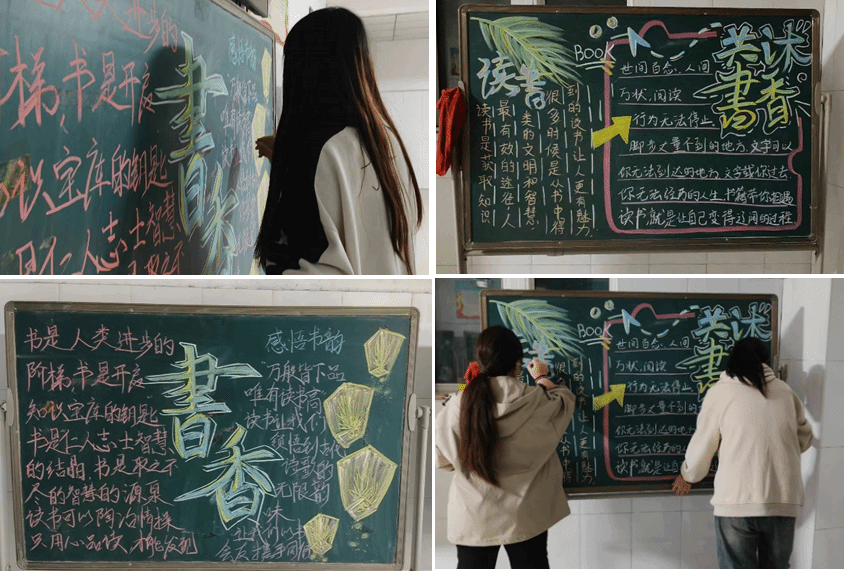 人类进步的
梯,书是开启
宝库的钥匙
是仁人志士智慧
書香
感悟书韵
读书
BOOK
共沐
書香
读书是获取知识
最有效的途径,人
类的文明和智慧
很多时候是从书中得
到的读书让人更有魅力
世间百态、人间
万状,阅读
行为无法停止
脚步丈量不到的地方 文字可以
你无法到达的地方 文字载你过去
你无法经历的人生 书籍带你相遇
读书就是让自己变得辽阔的过程
书是人类进步的
阶梯,书是开启
知识宝库的钥匙
书是仁人志士智慧
的结晶 书是取之不
尽的智慧的源泉
读书可以陶冶情操
只用心品位,才能发现
書香
感悟书韵
万般皆下品
唯有读书高
读书让我们
领悟到古代
诗歌的
无限韵
味
让我们以书
会友 携手同行
BOOK
共沐
書
世间百态、人间
万状,阅读
行为无法停止
脚步丈量不到的
你无法到达的地方
你无法经历的人生
读书就是让自己